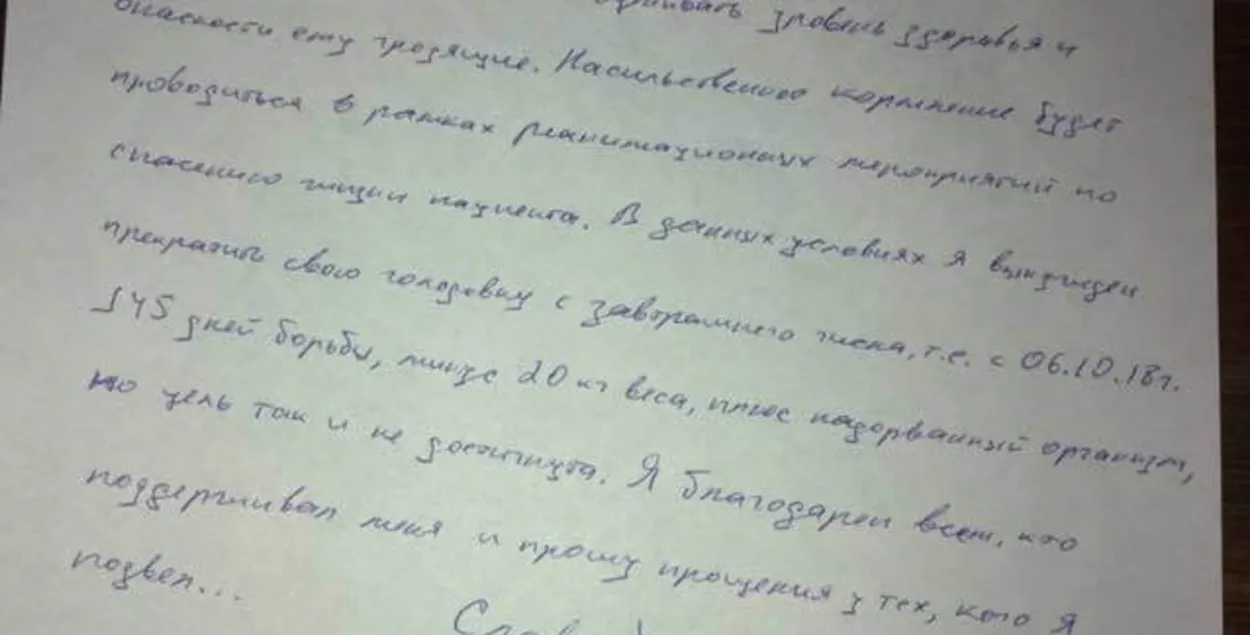 уровень здоровья и
опасности ему грозящие. Насильственное кормление будет
проводиться в рамках реанимационных мероприятий по
спасению жизни пациента. В данных условиях я вынужден
прекратить свою голодовку с завтрашнего числа, т.е. с 06.10.18г.
145 дней борьбы, минус 20 кг веса, плюс надорванный организм,
но цель так и не достигнута. Я благодарен всем, кто
поддерживал меня и прошу прощения у тех, кого я
подвел...